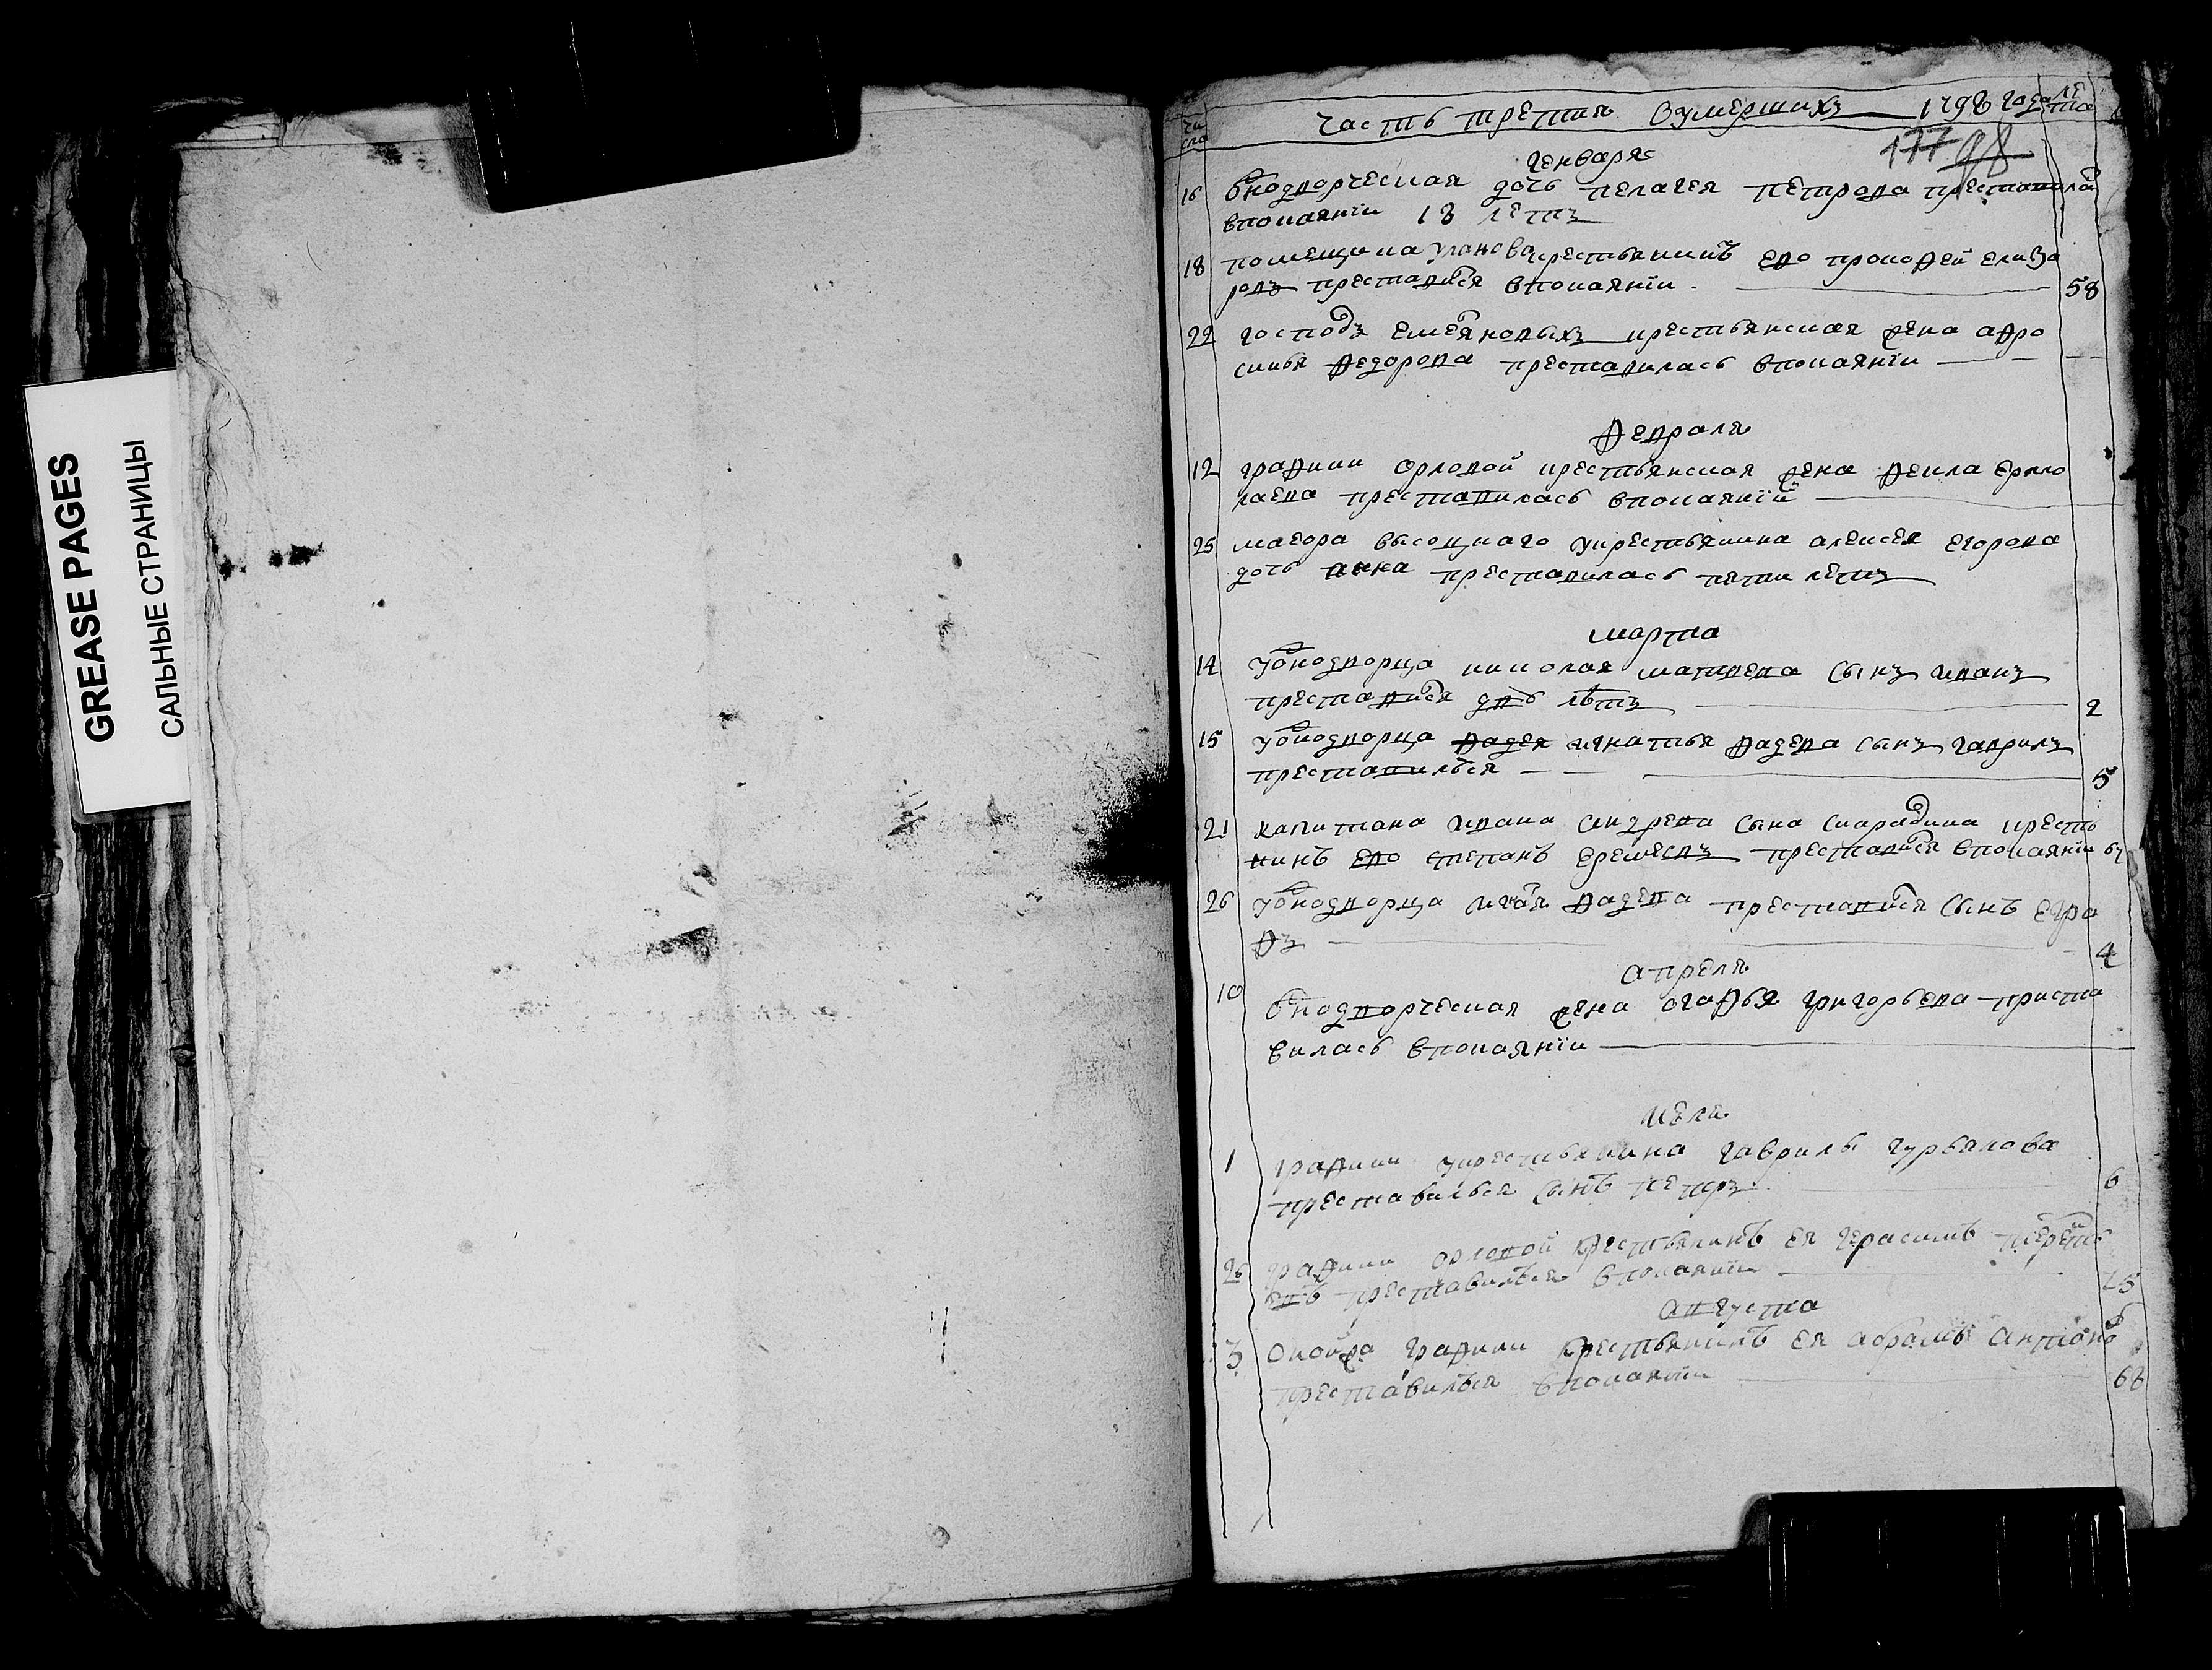 GREASE PAGES
САЛЬНЫЕ СТРАНИЦЫ
чи
сло
часть третия Оумершихъ 1798 года
лѣ
та
177 98
генваря
16 Однодворческая дочь пелагея петрова преставилась
впокаянїи 18 летъ
18 помещика уланова крестьянинъ ево прокофей елиза
ровъ преставился впокаянїи 58
22 господъ емельяновыхъ крестьянская жена афро
синья федорова преставилась впокаянїи
февраля
12 графини орловой крестьянская жена фекла ермо
лаева преставилась впокаянїи
25 маеора высоцкаго укрестьянина алексея егорова
дочь анна преставилась пети летъ
марта
14 уоднодворца николая матвева сынъ иванъ
преставился двѣ лѣтъ 2
15 уоднодворца фадея игнатья фадева сынъ гаврилъ
преставилъся 5
21 капитана ивана андрева сына скарядина кресть
нинъ ево степанъ еремевъ преставился впокаянїи
26 уоднодворца фадева преставился сынъ егра
фъ 4
апреля
10 Однодворческая жена огафья григорьева приста
вилась впокаянїи
июля
1 графини укрестьянина гаврилы гурьялова
преставилъся сынъ петръ 6
26 графини орловой крестьянинъ ея герасимъ терентъ
евъ преставилъся впокаянїи
августа
3 Оной жа графини крестьянинъ ея абрамъ антоновъ
преставилъся впокаянїи